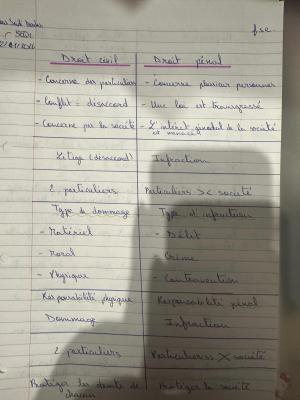 fse
Droit civil Droit pénal
- Concerne des particuliers - Concerne plusieurs personnes
- Conflit = désaccord - Une loi est transgressé
- Concerne pas la société - L'intérêt général de la société
est menacé
Litige (désaccord) Infraction
2 particuliers Particuliers >< société
Type de dommage Type d'infraction
- Matériel - Délit
- Moral - Crime
- Physique - Contravention
Responsabilité physique Responsabilité pénal
Dommage Infraction
2 particuliers Particuliers X société
Protéger les droits de Protéger la société
chacun